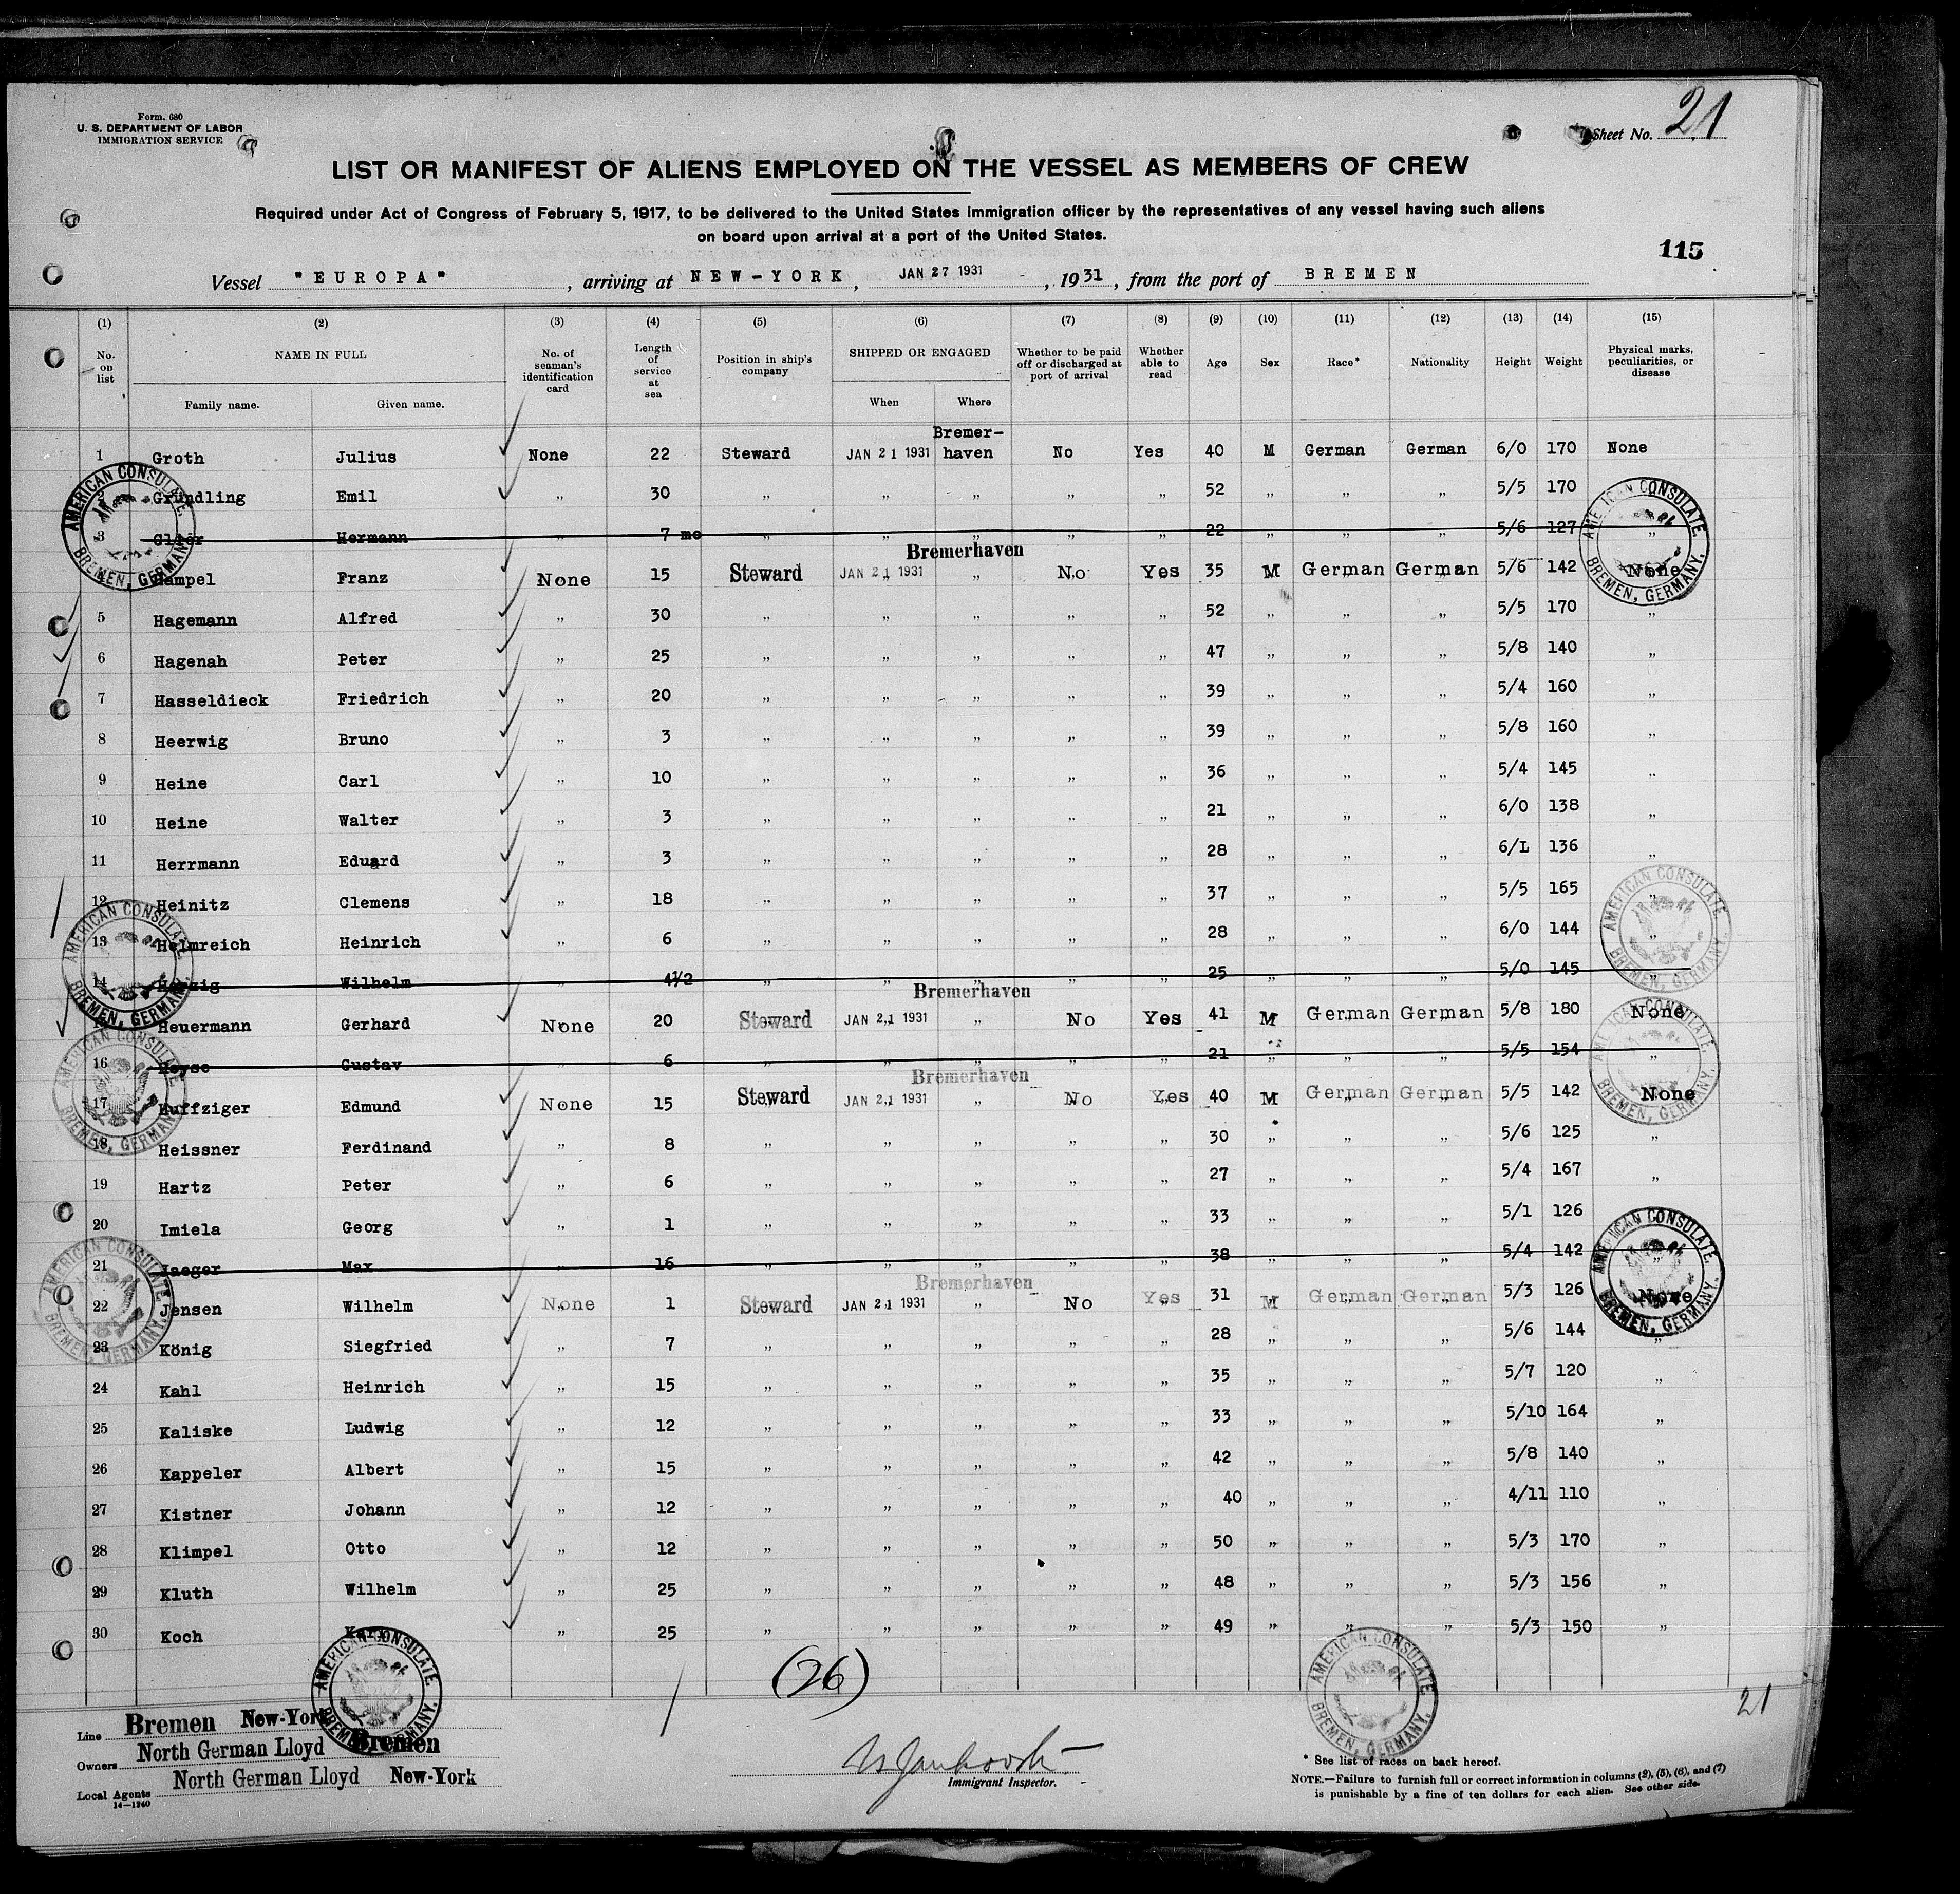 Form. 680
U. S. DEPARTMENT OF LABOR
IMMIGRATION SERVICE
Sheet No. 21
LIST OR MANIFEST OF ALIENS EMPLOYED ON THE VESSEL AS MEMBERS OF CREW
Required under Act of Congress of February 5, 1917, to be delivered to the United States immigration officer by the representatives of any vessel having such aliens
on board upon arrival at a port of the United States.
115
Vessel "EUROPA", arriving at NEW-YORK, JAN 27 1931, 1931, from the port of BREMEN
(1) (2) (3) (4) (5) (6) (7) (8) (9) (10) (11) (12) (13) (14) (15)
No. on list NAME IN FULL Family name. Given name. No. of seaman's identification card Length of service at sea Position in ship's company SHIPPED OR ENGAGED When Where Whether to be paid off or discharged at port of arrival Whether able to read Age Sex Race* Nationality Height Weight Physical marks, peculiarities, or disease
1 Groth Julius None 22 Steward JAN 21 1931 Bremer-haven No Yes 40 M German German 6/0 170 None
2 Gründling Emil „ 30 „ „ „ „ „ 52 „ „ „ 5/5 170
3 Hermann „ 7 mo „ „ „ „ „ 22 „ „ „ 5/6 127 „
Bremerhaven
4 Hampel Franz None 15 Steward JAN 21 1931 „ No Yes 35 M German German 5/6 142 None
5 Hagemann Alfred „ 30 „ „ „ „ „ 52 „ „ „ 5/5 170 „
6 Hagenah Peter „ 25 „ „ „ „ „ 47 „ „ „ 5/8 140 „
7 Hasseldieck Friedrich „ 20 „ „ „ „ „ 39 „ „ „ 5/4 160 „
8 Heerwig Bruno „ 3 „ „ „ „ „ 39 „ „ „ 5/8 160 „
9 Heine Carl „ 10 „ „ „ „ „ 36 „ „ „ 5/4 145 „
10 Heine Walter „ 3 „ „ „ „ „ 21 „ „ „ 6/0 138 „
11 Herrmann Eduard „ 3 „ „ „ „ „ 28 „ „ „ 6/L 136 „
12 Heinitz Clemens „ 18 „ „ „ „ „ 37 „ „ „ 5/5 165 „
13 Helmreich Heinrich „ 6 „ „ „ „ „ 28 „ „ „ 6/0 144 „
14 Herzig Wilhelm „ 4 1/2 „ „ „ „ „ 25 „ „ „ 5/0 145 „
Bremerhaven
15 Heuermann Gerhard None 20 Steward JAN 21 1931 „ No Yes 41 M German German 5/8 180 None
16 Heyse Gustav „ 6 „ „ „ „ „ 21 „ „ „ 5/5 154 „
Bremerhaven
17 Huffziger Edmund None 15 Steward JAN 21 1931 „ No Yes 40 M German German 5/5 142 None
18 Heissner Ferdinand „ 8 „ „ „ „ „ 30 „ „ „ 5/6 125 „
19 Hartz Peter „ 6 „ „ „ „ „ 27 „ „ „ 5/4 167 „
20 Imiela Georg „ 1 „ „ „ „ „ 33 „ „ „ 5/1 126
21 Jaeger Max „ 16 „ „ „ „ „ 38 „ „ „ 5/4 142 „
Bremerhaven
22 Jensen Wilhelm None 1 Steward JAN 21 1931 „ No Yes 31 M German German 5/3 126 None
23 König Siegfried „ 7 „ „ „ „ „ 28 „ „ „ 5/6 144 „
24 Kahl Heinrich „ 15 „ „ „ „ „ 35 „ „ „ 5/7 120 „
25 Kaliske Ludwig „ 12 „ „ „ „ „ 33 „ „ „ 5/10 164 „
26 Kappeler Albert „ 15 „ „ „ „ „ 42 „ „ „ 5/8 140 „
27 Kistner Johann „ 12 „ „ „ „ „ 40 „ „ „ 4/11 110 „
28 Klimpel Otto „ 12 „ „ „ „ „ 50 „ „ „ 5/3 170 „
29 Kluth Wilhelm „ 25 „ „ „ „ „ 48 „ „ „ 5/3 156 „
30 Koch Karl „ 25 „ „ „ „ „ 49 „ „ „ 5/3 150 „
AMERICAN CONSULATE. BREMEN, GERMANY.
AMERICAN CONSULATE. BREMEN, GERMANY.
AMERICAN CONSULATE. BREMEN, GERMANY.
AMERICAN CONSULATE. BREMEN, GERMANY.
AMERICAN CONSULATE. BREMEN, GERMANY.
AMERICAN CONSULATE. BREMEN, GERMANY.
AMERICAN CONSULATE. BREMEN, GERMANY.
AMERICAN CONSULATE. BREMEN, GERMANY.
AMERICAN CONSULATE. BREMEN, GERMANY.
AMERICAN CONSULATE. BREMEN, GERMANY.
(26)
21
Line Bremen New-York Bremen
Owners North German Lloyd
Local Agents North German Lloyd New-York
14—1240
Immigrant Inspector.
* See list of races on back hereof.
NOTE.—Failure to furnish full or correct information in columns (2), (5), (6), and (7)
is punishable by a fine of ten dollars for each alien. See other side.